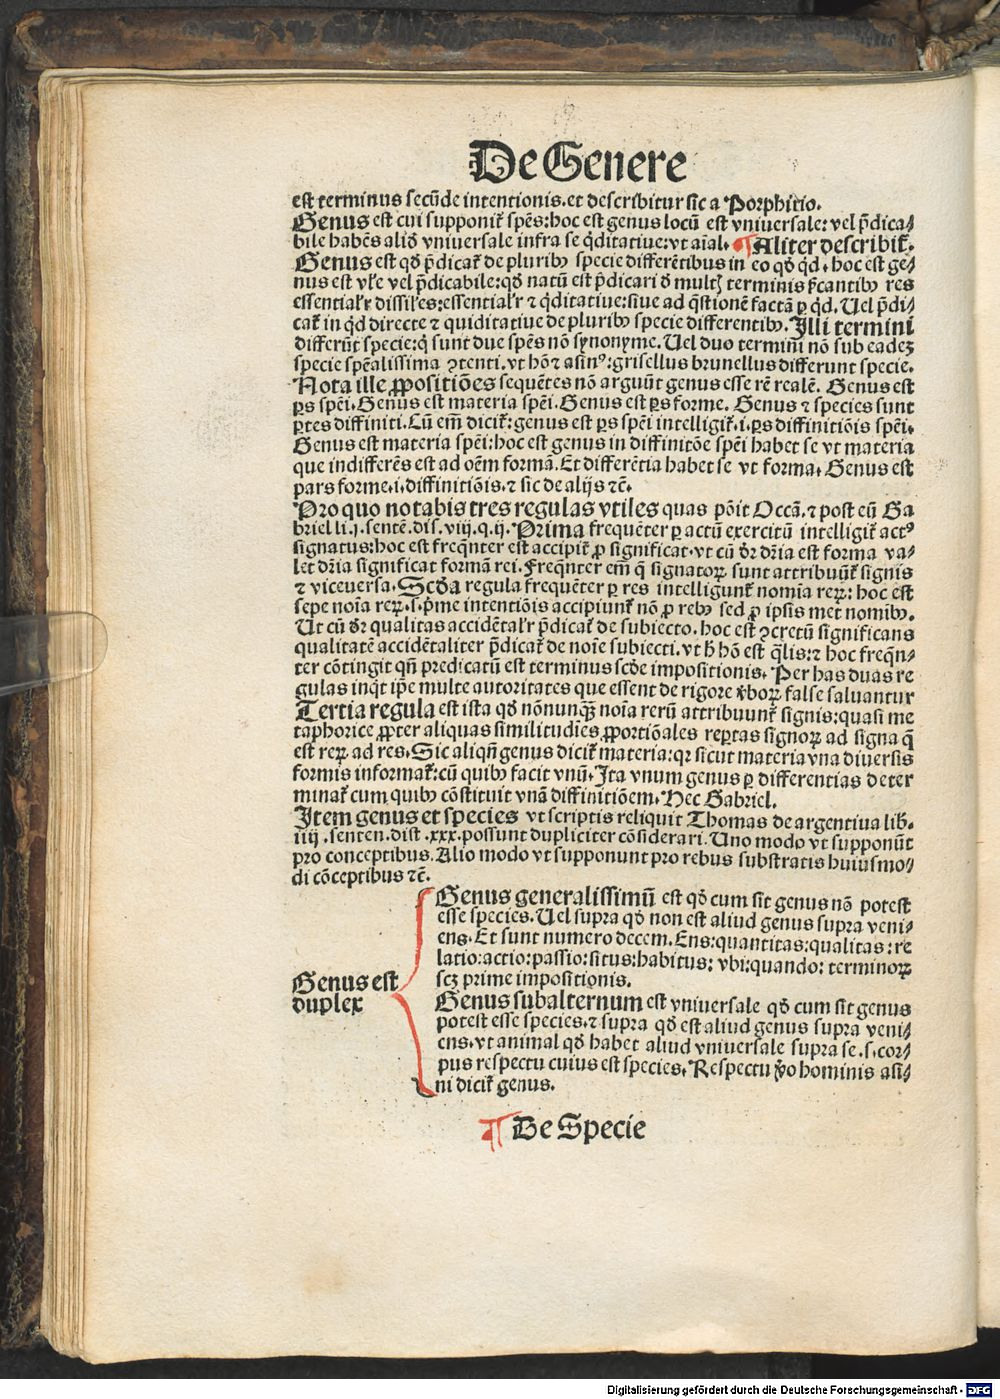 De Genere
est terminus secūde intentionis. et describitur sic a Porphirio.
Genus est cui supponit᷑ sp̄es: hoc est genus locū est vniuersale: vel p̄dica⸗
bile habēs aliđ vniuersale infra se q̄ditatiue: vt aīal. ¶ Aliter describit᷑.
Genus est qđ p̄dicat᷑ de pluribꝰ specie differētibus in eo qđ qd. hoc est ge⸗
nus est vl̄e vel p̄dicabile: qđ natū est p̄dicari đ multꝭ terminis sīcantibꝰ res
essential᷑r dissil̄es: essential᷑r ⁊ q̄ditatiue: siue ad q̄stionē factā ꝑ qd. Uel p̄di⸗
cat᷑ in qd directe ⁊ quiditatiue de pluribꝰ specie differentibꝰ. Illi termini
differūt specie: q̄ sunt due sp̄es nō synonyme. Uel duo termini nō sub eadeꝫ
specie sp̄ealissima ↄtenti. vt hō ⁊ asinꝰ: grisellus brunellus differunt specie.
Nota ille ꝓpositiōes sequētes nō arguūt genus esse rē realē. Genus est
ꝑs sp̄ei. Genus est materia sp̄ei. Genus est ꝑs forme. Genus ⁊ species sunt
ꝑtes diffiniti. Cū em̄ dicit᷑: genus est ꝑs sp̄ei intelligit᷑. i. ꝑs diffinitiōis sp̄ei.
Genus est materia sp̄ei: hoc est genus in diffinitōe sp̄ei habet se vt materia
que indifferēs est ad oēm formā. Et differētia habet se vt forma. Genus est
pars forme. i. diffinitiōis. ⁊ sic de alijs ⁊c̄.
Pro quo notabis tres regulas vtiles quas pōit Occā. ⁊ post eū Ga
briel li. j. sentē. dis. viij. q. ij. Prima frequēter ꝑ actū exercitū intelligit᷑ actꝰ
signatus: hoc est freq̄nter est accipit᷑ ꝓ significat. vt cū đr dr̄ia est forma va⸗
let dr̄ia significat formā rei. Freq̄nter em̄ q̄ signatoꝝ sunt attribuūt᷑ signis
⁊ viceuersa. Scđa regula frequēter ꝑ res intelligunt᷑ nomīa reꝝ: hoc est
sepe noīa reꝝ. s. p̄me intentiōis accipiunt᷑ nō ꝓ rebꝰ sed ꝓ ipsis met nomībꝰ.
Ut cū đr qualitas accidētal᷑r p̄dicat᷑ de subiecto. hoc est ↄcretū significans
qualitatē accidētaliter p̄dicat᷑ de noīe subiecti. vt h̄ hō est q̄lis: ⁊ hoc freq̄n⸗
ter cōtingit qn̄ predicatū est terminus scđe impositionis. Per has duas re
gulas inq̄t ip̄e multe autoritates que essent de rigore v̄boꝝ false saluantur
Tertia regula est ista qđ nōnunqꝫ noīa rerū attribuunt᷑ signis: quasi me
taphorice ꝓpter aliquas similitudīes ꝓportiōales rep̱tas signoꝝ ad signa q̄
est reꝝ ad res. Sic aliqn̄ genus dicit᷑ materia: qꝛ sicut materia vna diuersis
formis informat᷑: cū quibꝰ facit vnū. Ita vnum genus ꝑ differentias deter
minat᷑ cum quibꝰ cōstituit vnā diffinitiōem. Hec Gabriel.
Item genus et species vt scriptis reliquit Thomas de argentiua lib.
iiij. senten. dist. .xxx. possunt dupliciter cōsiderari. Uno modo vt supponūt
pro conceptibus. Alio modo vt supponunt pro rebus substratis huiusmo⸗
di cōceptibus ⁊c̄.
Genus est
duplex
Genus generalissimū est qđ cum sit genus nō potest
esse species. Uel supra qđ non est aliud genus supra veni⸗
ens. Et sunt numero decem. Ens: quantitas: qualitas: re
latio: actio: passio: situs: habitus: vbi: quando: terminoꝝ
scꝫ prime impositionis.
Genus subalternum est vniuersale qđ cum sit genus
potest esse species. ⁊ supra qđ est aliud genus supra veni⸗
ens. vt animal qđ habet aliud vniuersale supra se. s. cor⸗
pus respectu cuius est species. Respectu v̄o hominis asi⸗
ni dicit᷑ genus.
¶ De Specie
Digitalisierung gefördert durch die Deutsche Forschungsgemeinschaft - DFG